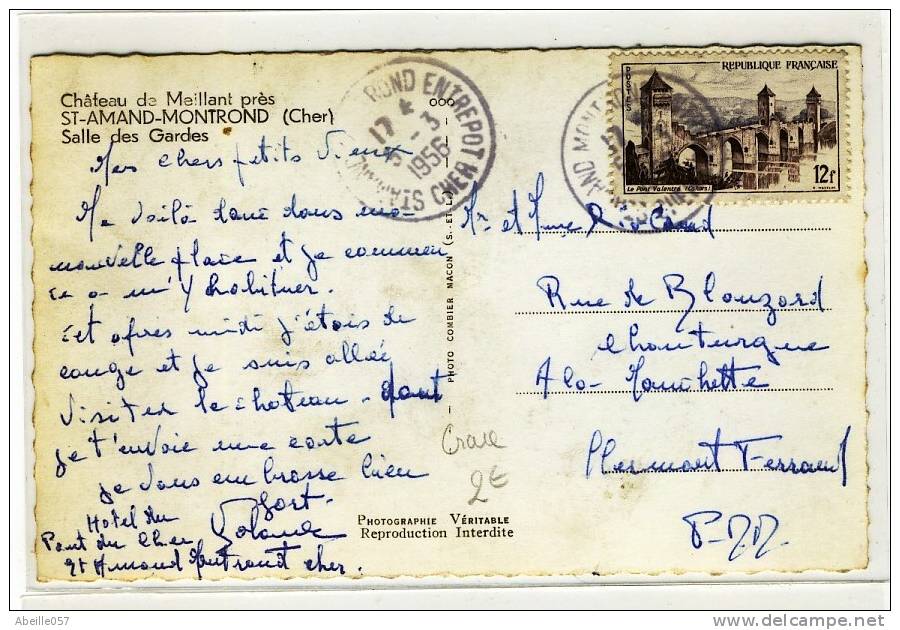 Château de Meillant près
ST-AMAND-MONTROND (Cher)
Salle des Gardes
Mes chers petits Vieux
Me Voilà donc dans ma
nouvelle place et je commen
ce a m'y habituer.
cet après midi j'étois de
conge et je suis allée
Visiter le chateau - dont
je t'envoie une carte
je vous embrasse bien
fort.
Yolande
Hotel du
Pont du Cher
St Amand Montrond Cher.
OND ENTREPOT
17 -3
1956
CHER
000
PHOTO COMBIER MACON (S.-ET-L.)
RÉPUBLIQUE FRANÇAISE
POSTES
Le Pont Valentré (Cahors)
12f
AND MONT
Mr et Mme
Rue de Blanzard
Chanturgue
A la
Clermont Ferrand
P-DD.
2€
PHOTOGRAPHIE VÉRITABLE
Reproduction Interdite
Abeille057
http://www.delcampe.net